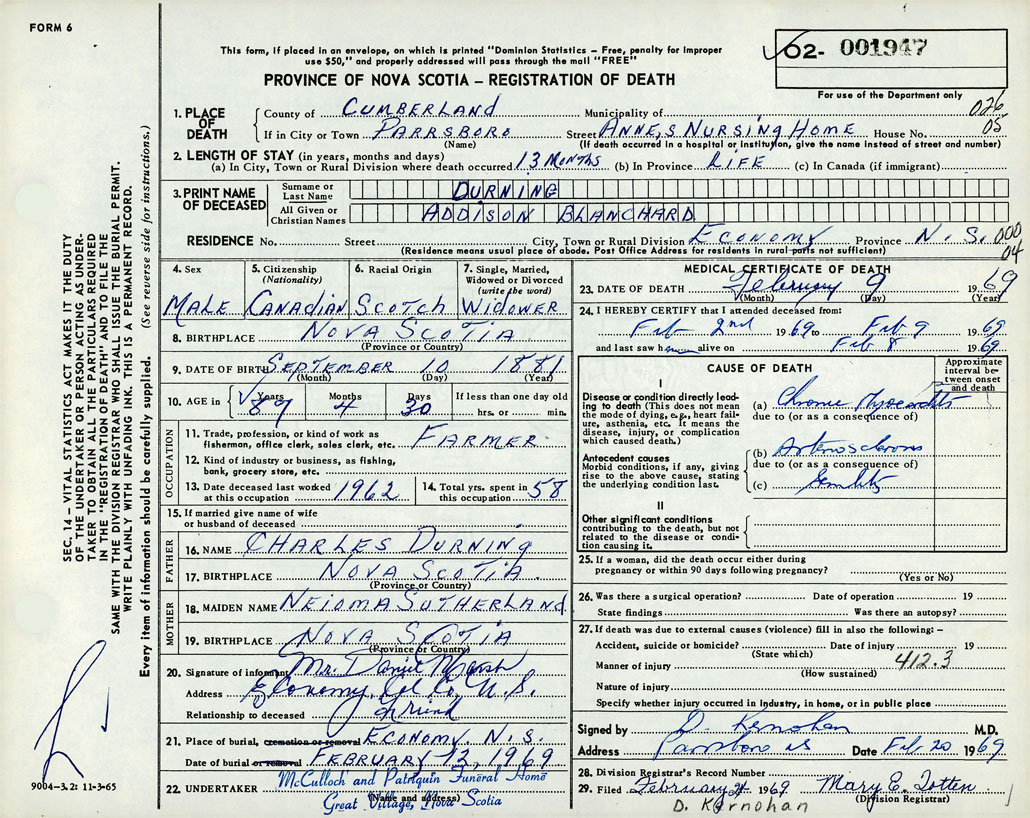 FORM 6
This form, if placed in an envelope, on which is printed "Dominion Statistics – Free, penalty for improper
use $50," and properly addressed will pass through the mail "FREE"
PROVINCE OF NOVA SCOTIA – REGISTRATION OF DEATH
02- 001947
For use of the Department only
1. PLACE OF DEATH
County of CUMBERLAND Municipality of 026
If in City or Town PARRSBORO Street ANNE,S NURSING HOME House No. 05
(Name) (If death occurred in a hospital or institution, give the name instead of street and number)
2. LENGTH OF STAY (in years, months and days)
(a) In City, Town or Rural Division where death occurred 13 MONTHS (b) In Province LIFE (c) In Canada (if immigrant)
3. PRINT NAME OF DECEASED
Surname or Last Name DURNING
All Given or Christian Names ADDISON BLANCHARD
RESIDENCE No. Street City, Town or Rural Division ECONOMY Province N.S. 000
04
(Residence means usual place of abode. Post Office Address for residents in rural parts not sufficient)
4. Sex
MALE
5. Citizenship
(Nationality)
CANADIAN
6. Racial Origin
SCOTCH
7. Single, Married,
Widowed or Divorced
(write the word)
WIDOWER
8. BIRTHPLACE NOVA SCOTIA
(Province or Country)
9. DATE OF BIRTH SEPTEMBER 10 1881
(Month) (Day) (Year)
10. AGE in Years Months Days If less than one day old
89 4 30 hrs. or min.
OCCUPATION
11. Trade, profession, or kind of work as
fisherman, office clerk, sales clerk, etc. FARMER
12. Kind of industry or business, as fishing,
bank, grocery store, etc.
13. Date deceased last worked
at this occupation 1962
14. Total yrs. spent in
this occupation 58
15. If married give name of wife
or husband of deceased
FATHER
16. NAME CHARLES DURNING
17. BIRTHPLACE NOVA SCOTIA.
(Province or Country)
MOTHER
18. MAIDEN NAME NEIOMA SUTHERLAND
19. BIRTHPLACE NOVA SCOTIA
(Province or Country)
20. Signature of informant Mr. Daniel Marsh
Address Economy, Col Co, N.S.
Relationship to deceased friend
21. Place of burial, cremation or removal ECONOMY. N.S.
Date of burial or removal FEBRUARY 12, 1969
22. UNDERTAKER McCulloch and Patriquin Funeral Home
(Name and address)
Great Village, Nova Scotia
MEDICAL CERTIFICATE OF DEATH
23. DATE OF DEATH February 9 1969
(Month) (Day) (Year)
24. I HEREBY CERTIFY that I attended deceased from:
Feb 2nd 1969 to Feb 9 1969
and last saw him alive on Feb 8 1969
CAUSE OF DEATH
Approximate interval between onset and death
I
Disease or condition directly lead-
ing to death (This does not mean
the mode of dying, e.g., heart fail-
ure, asthenia, etc. It means the
disease, injury, or complication
which caused death.)
(a) Chronic Myocarditis
due to (or as a consequence of)
Antecedent causes
Morbid conditions, if any, giving
rise to the above cause, stating
the underlying condition last.
(b) Arteriosclerosis
due to (or as a consequence of)
(c) Senility
II
Other significant conditions
contributing to the death, but not
related to the disease or condi-
tion causing it.
25. If a woman, did the death occur either during
pregnancy or within 90 days following pregnancy?
(Yes or No)
26. Was there a surgical operation? Date of operation 19
State findings Was there an autopsy?
27. If death was due to external causes (violence) fill in also the following: –
Accident, suicide or homicide? Date of injury 19
(State which)
Manner of injury 412.3
(How sustained)
Nature of injury
Specify whether injury occurred in industry, in home, or in public place
Signed by D. Kernohan M.D.
Address Parrsboro NS Date Feb 20 1969
28. Division Registrar's Record Number
29. Filed February 21 1969 Mary E. Totten
(Division Registrar)
D. Kernohan
SEC. 14 – VITAL STATISTICS ACT MAKES IT THE DUTY
OF THE UNDERTAKER OR PERSON ACTING AS UNDER-
TAKER TO OBTAIN ALL THE PARTICULARS REQUIRED
IN THE "REGISTRATION OF DEATH" AND TO FILE THE
SAME WITH THE DIVISION REGISTRAR WHO SHALL ISSUE THE BURIAL PERMIT.
WRITE PLAINLY WITH UNFADING INK. THIS IS A PERMANENT RECORD.
Every item of information should be carefully supplied. (See reverse side for instructions.)
9004-3.2: 11-3-65